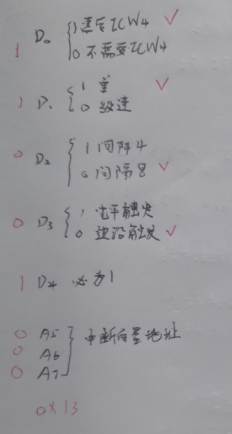 1 D₀ { 1 需要ICW4 ✓
0 不需要ICW4
1 D₁ { 1 单 ✓
0 级连
0 D₂ { 1 间隔4
0 间隔8 ✓
0 D₃ { 1 电平触发
0 边沿触发 ✓
1 D₄ 必为1
0 A5
0 A6 } 中断向量地址
0 A7
0x13